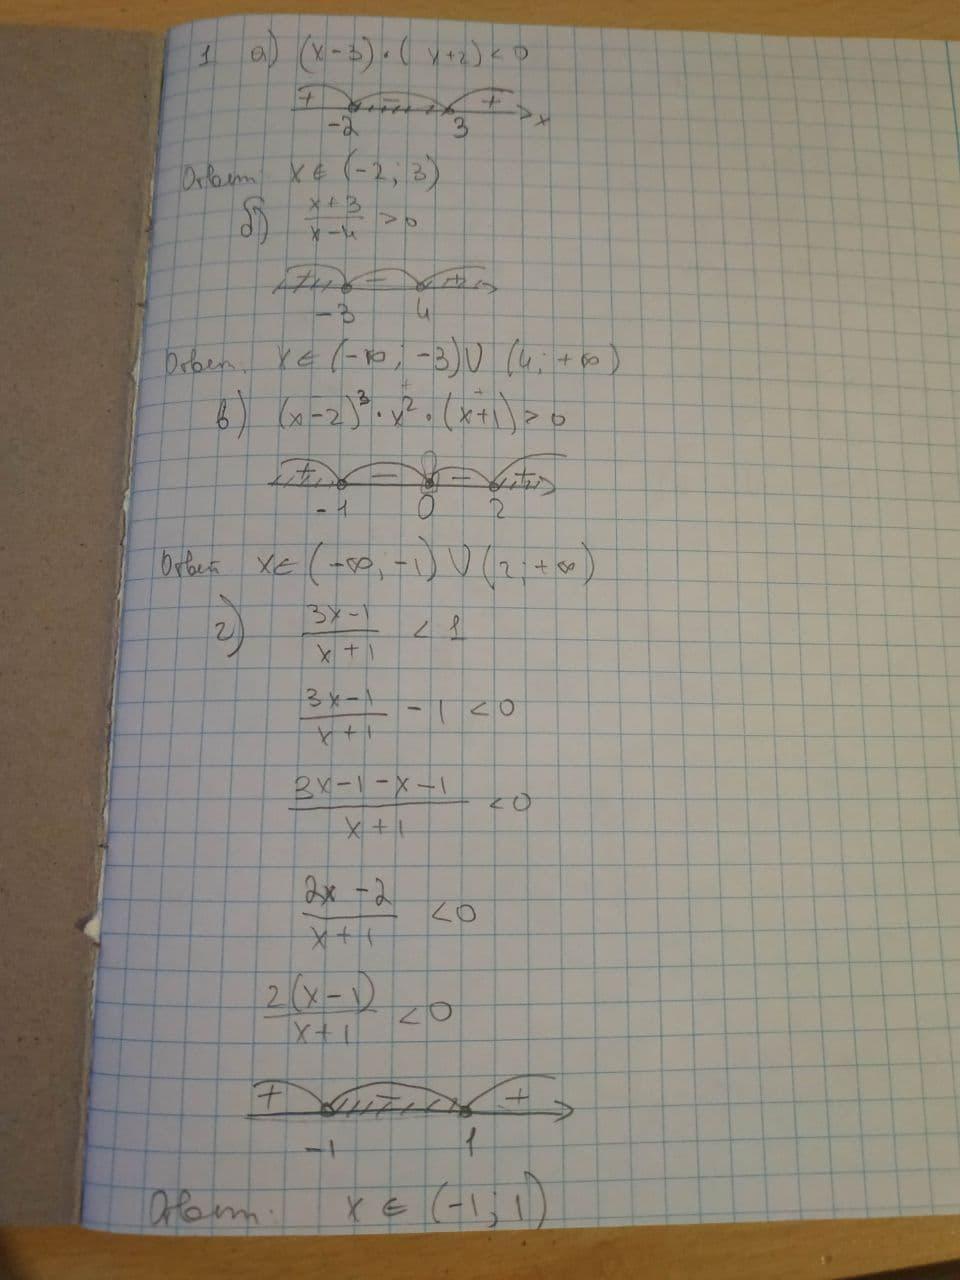 1 а) (x-3)·(x+2)<0
+ - +
-2 3 x
Ответ x∈(-2; 3)
б) x+3/x-4 >0
+ - +
-3 4
Ответ. x∈(-∞; -3)∪(4; +∞)
+ +
в) (x-2)³·x²·(x+1)>0
+ - - +
-1 0 2
Ответ x∈(-∞; -1)∪(2; +∞)
г) 3x-1/x+1 < 1
3x-1/x+1 - 1 <0
3x-1-x-1/x+1 <0
2x-2/x+1 <0
2(x-1)/x+1 <0
+ - +
-1 1
Ответ. x∈(-1; 1)